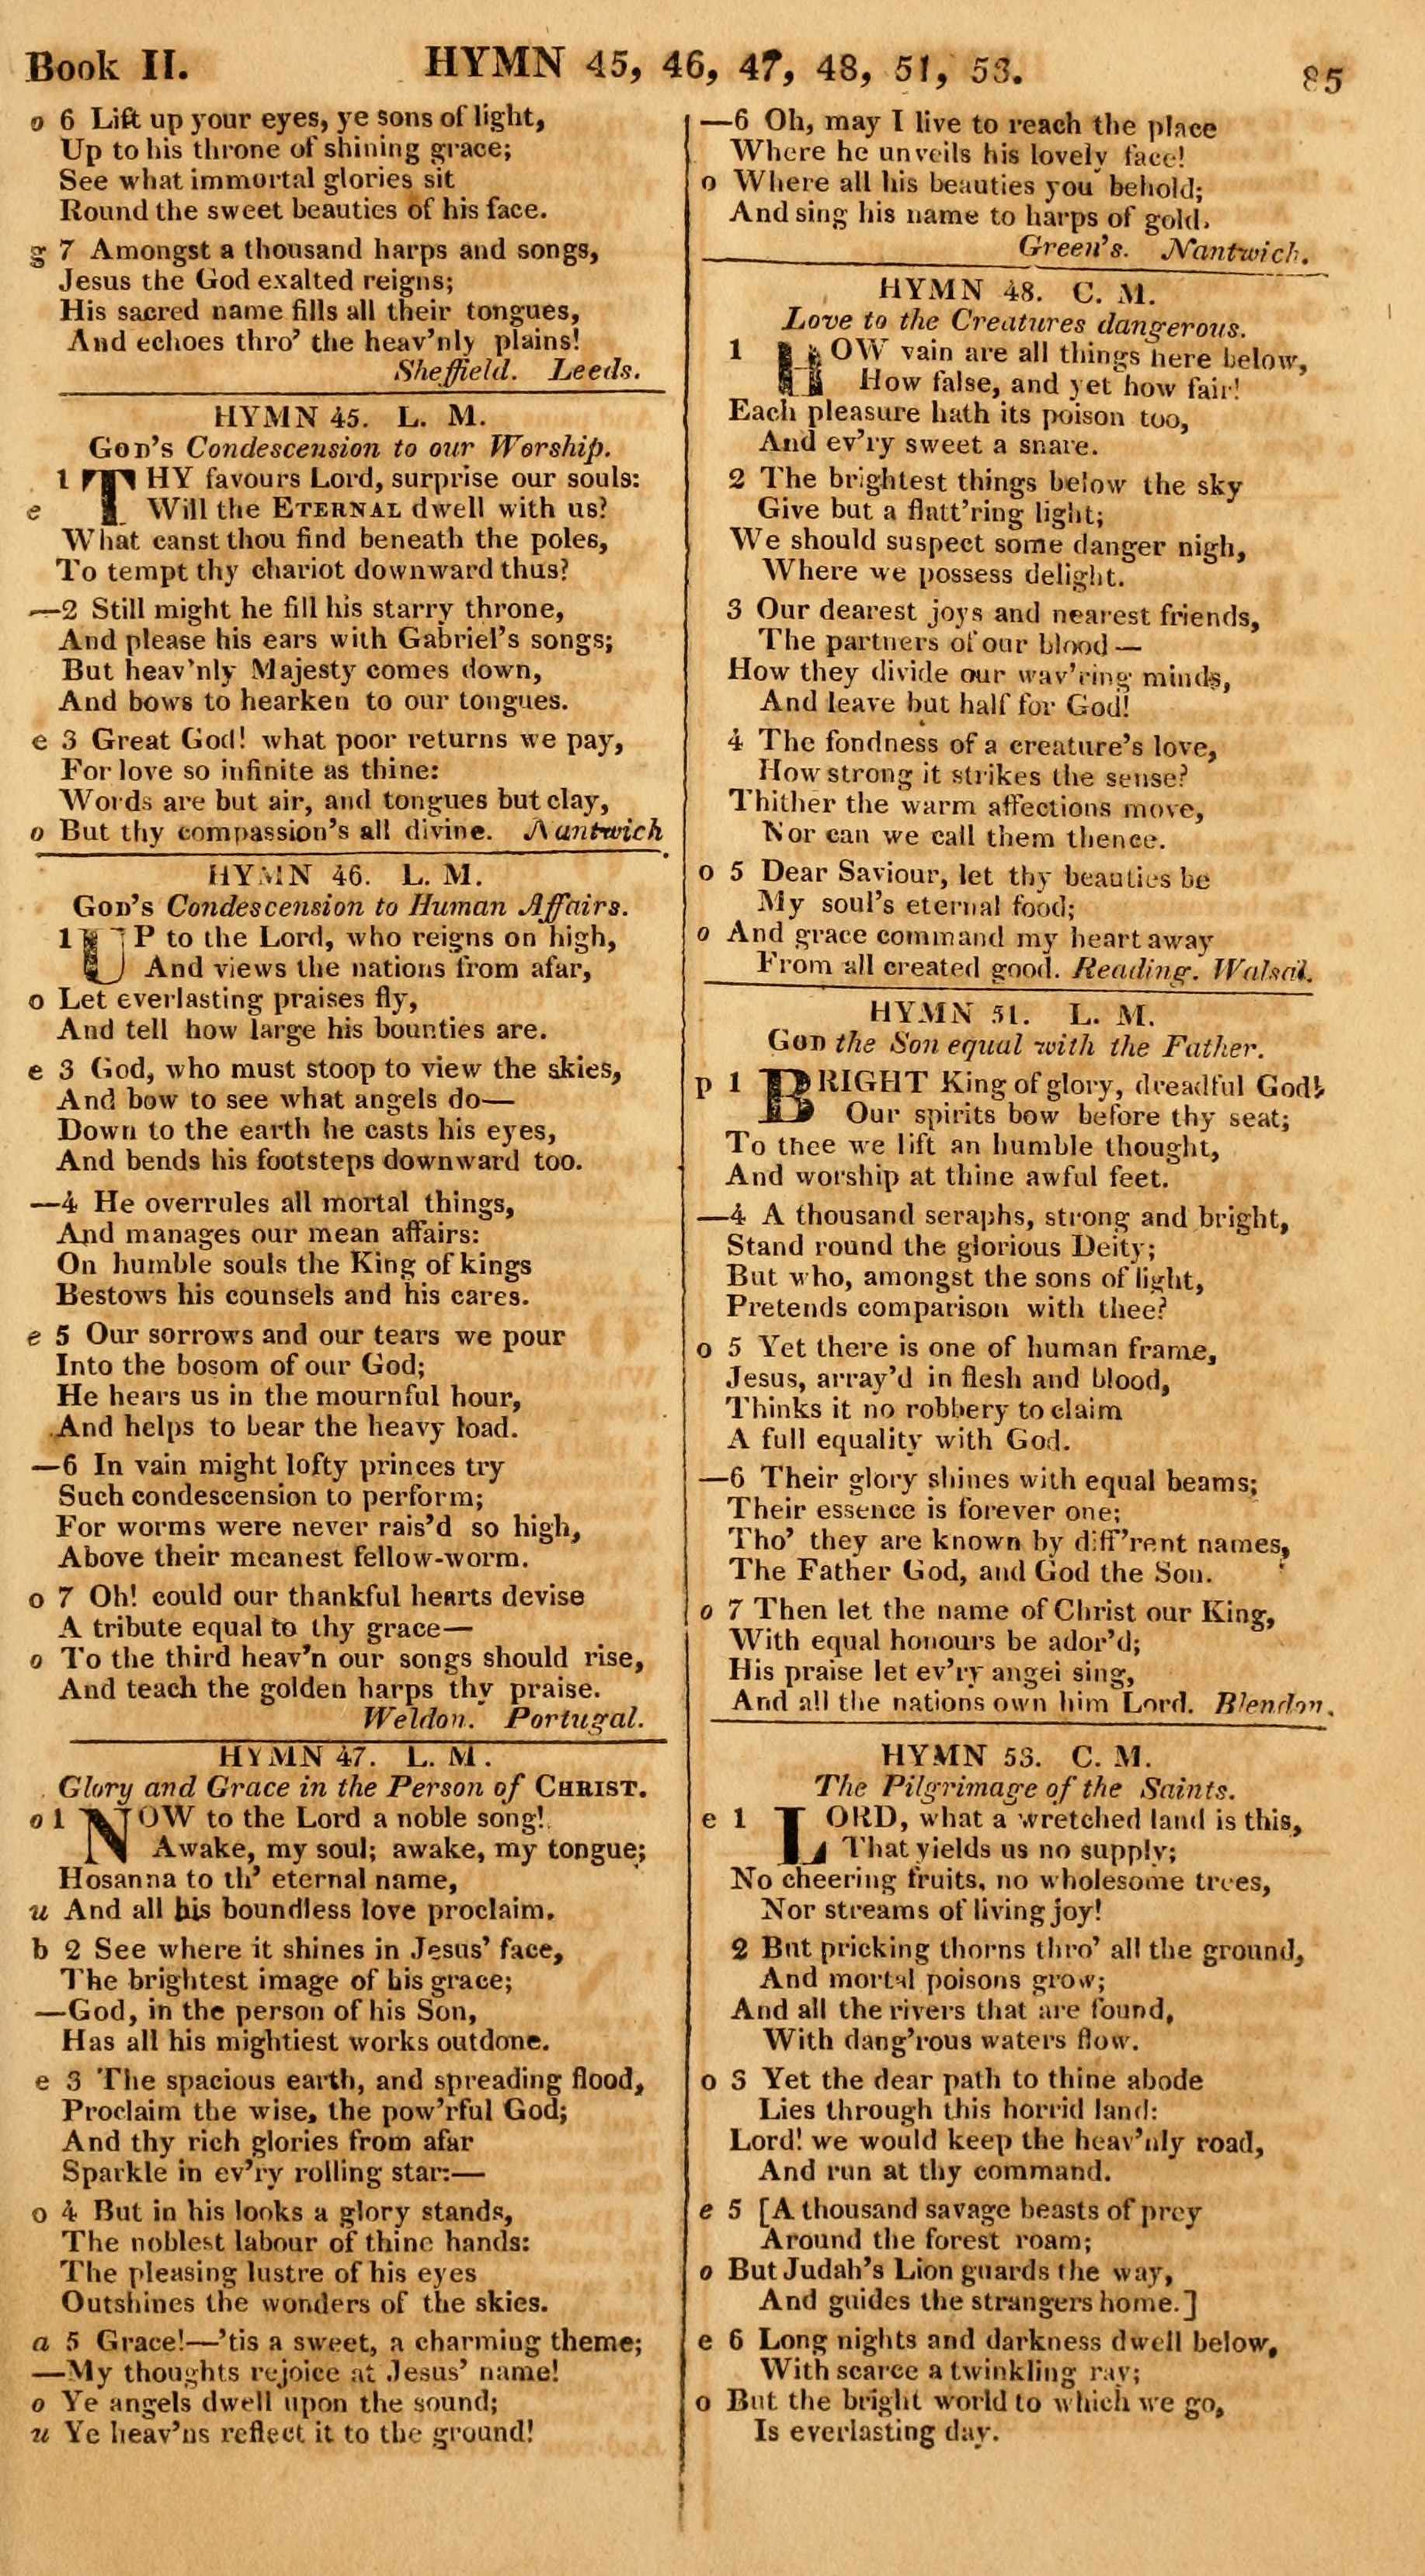 Book II.
HYMN 45, 46, 47, 48, 51, 53.
85
o 6 Lift up your eyes, ye sons of light,
Up to his throne of shining grace;
See what immortal glories sit
Round the sweet beauties of his face.
g 7 Amongst a thousand harps and songs,
Jesus the God exalted reigns;
His sacred name fills all their tongues,
And echoes thro' the heav'nly plains!
Sheffield. Leeds.
HYMN 45. L. M.
GOD'S Condescension to our Worship.
1 THY favours Lord, surprise our souls:
e Will the ETERNAL dwell with us?
What canst thou find beneath the poles,
To tempt thy chariot downward thus?
—2 Still might he fill his starry throne,
And please his ears with Gabriel's songs;
But heav'nly Majesty comes down,
And bows to hearken to our tongues.
e 3 Great God! what poor returns we pay,
For love so infinite as thine:
Words are but air, and tongues but clay,
o But thy compassion's all divine. Nantwich
HYMN 46. L. M.
GOD'S Condescension to Human Affairs.
1 UP to the Lord, who reigns on high,
And views the nations from afar,
o Let everlasting praises fly,
And tell how large his bounties are.
e 3 God, who must stoop to view the skies,
And bow to see what angels do—
Down to the earth he casts his eyes,
And bends his footsteps downward too.
—4 He overrules all mortal things,
And manages our mean affairs:
On humble souls the King of kings
Bestows his counsels and his cares.
e 5 Our sorrows and our tears we pour
Into the bosom of our God;
He hears us in the mournful hour,
And helps to bear the heavy load.
—6 In vain might lofty princes try
Such condescension to perform;
For worms were never rais'd so high,
Above their meanest fellow-worm.
o 7 Oh! could our thankful hearts devise
A tribute equal to thy grace—
o To the third heav'n our songs should rise,
And teach the golden harps thy praise.
Weldon. Portugal.
HYMN 47. L. M.
Glory and Grace in the Person of CHRIST.
o 1 NOW to the Lord a noble song!
Awake, my soul; awake, my tongue;
Hosanna to th' eternal name,
u And all his boundless love proclaim.
b 2 See where it shines in Jesus' face,
The brightest image of his grace;
—God, in the person of his Son,
Has all his mightiest works outdone.
e 3 The spacious earth, and spreading flood,
Proclaim the wise, the pow'rful God;
And thy rich glories from afar
Sparkle in ev'ry rolling star:—
o 4 But in his looks a glory stands,
The noblest labour of thine hands:
The pleasing lustre of his eyes
Outshines the wonders of the skies.
a 5 Grace!—'tis a sweet, a charming theme;
—My thoughts rejoice at Jesus' name!
o Ye angels dwell upon the sound;
u Ye heav'ns reflect it to the ground!
—6 Oh, may I live to reach the place
Where he unveils his lovely face!
o Where all his beauties you behold;
And sing his name to harps of gold.
Green's. Nantwich.
HYMN 48. C. M.
Love to the Creatures dangerous.
1 HOW vain are all things here below,
How false, and yet how fair!
Each pleasure hath its poison too,
And ev'ry sweet a snare.
2 The brightest things below the sky
Give but a flatt'ring light;
We should suspect some danger nigh,
Where we possess delight.
3 Our dearest joys and nearest friends,
The partners of our blood—
How they divide our wav'ring minds,
And leave but half for God!
4 The fondness of a creature's love,
How strong it strikes the sense?
Thither the warm affections move,
Nor can we call them thence.
o 5 Dear Saviour, let thy beauties be
My soul's eternal food;
o And grace command my heart away
From all created good. Reading. Walsal.
HYMN 51. L. M.
GOD the Son equal with the Father.
p 1 BRIGHT King of glory, dreadful God!
Our spirits bow before thy seat;
To thee we lift an humble thought,
And worship at thine awful feet.
—4 A thousand seraphs, strong and bright,
Stand round the glorious Deity;
But who, amongst the sons of light,
Pretends comparison with thee?
o 5 Yet there is one of human frame,
Jesus, array'd in flesh and blood,
Thinks it no robbery to claim
A full equality with God.
—6 Their glory shines with equal beams;
Their essence is forever one;
Tho' they are known by diff'rent names,
The Father God, and God the Son.
o 7 Then let the name of Christ our King,
With equal honours be ador'd;
His praise let ev'ry angel sing,
And all the nations own him Lord. Blendon.
HYMN 53. C. M.
The Pilgrimage of the Saints.
e 1 LORD, what a wretched land is this,
That yields us no supply;
No cheering fruits, no wholesome trees,
Nor streams of living joy!
2 But pricking thorns thro' all the ground,
And mortal poisons grow;
And all the rivers that are found,
With dang'rous waters flow.
o 3 Yet the dear path to thine abode
Lies through this horrid land:
Lord! we would keep the heav'nly road,
And run at thy command.
e 5 [A thousand savage beasts of prey
Around the forest roam;
o But Judah's Lion guards the way,
And guides the strangers home.]
e 6 Long nights and darkness dwell below,
With scarce a twinkling ray;
o But the bright world to which we go,
Is everlasting day.